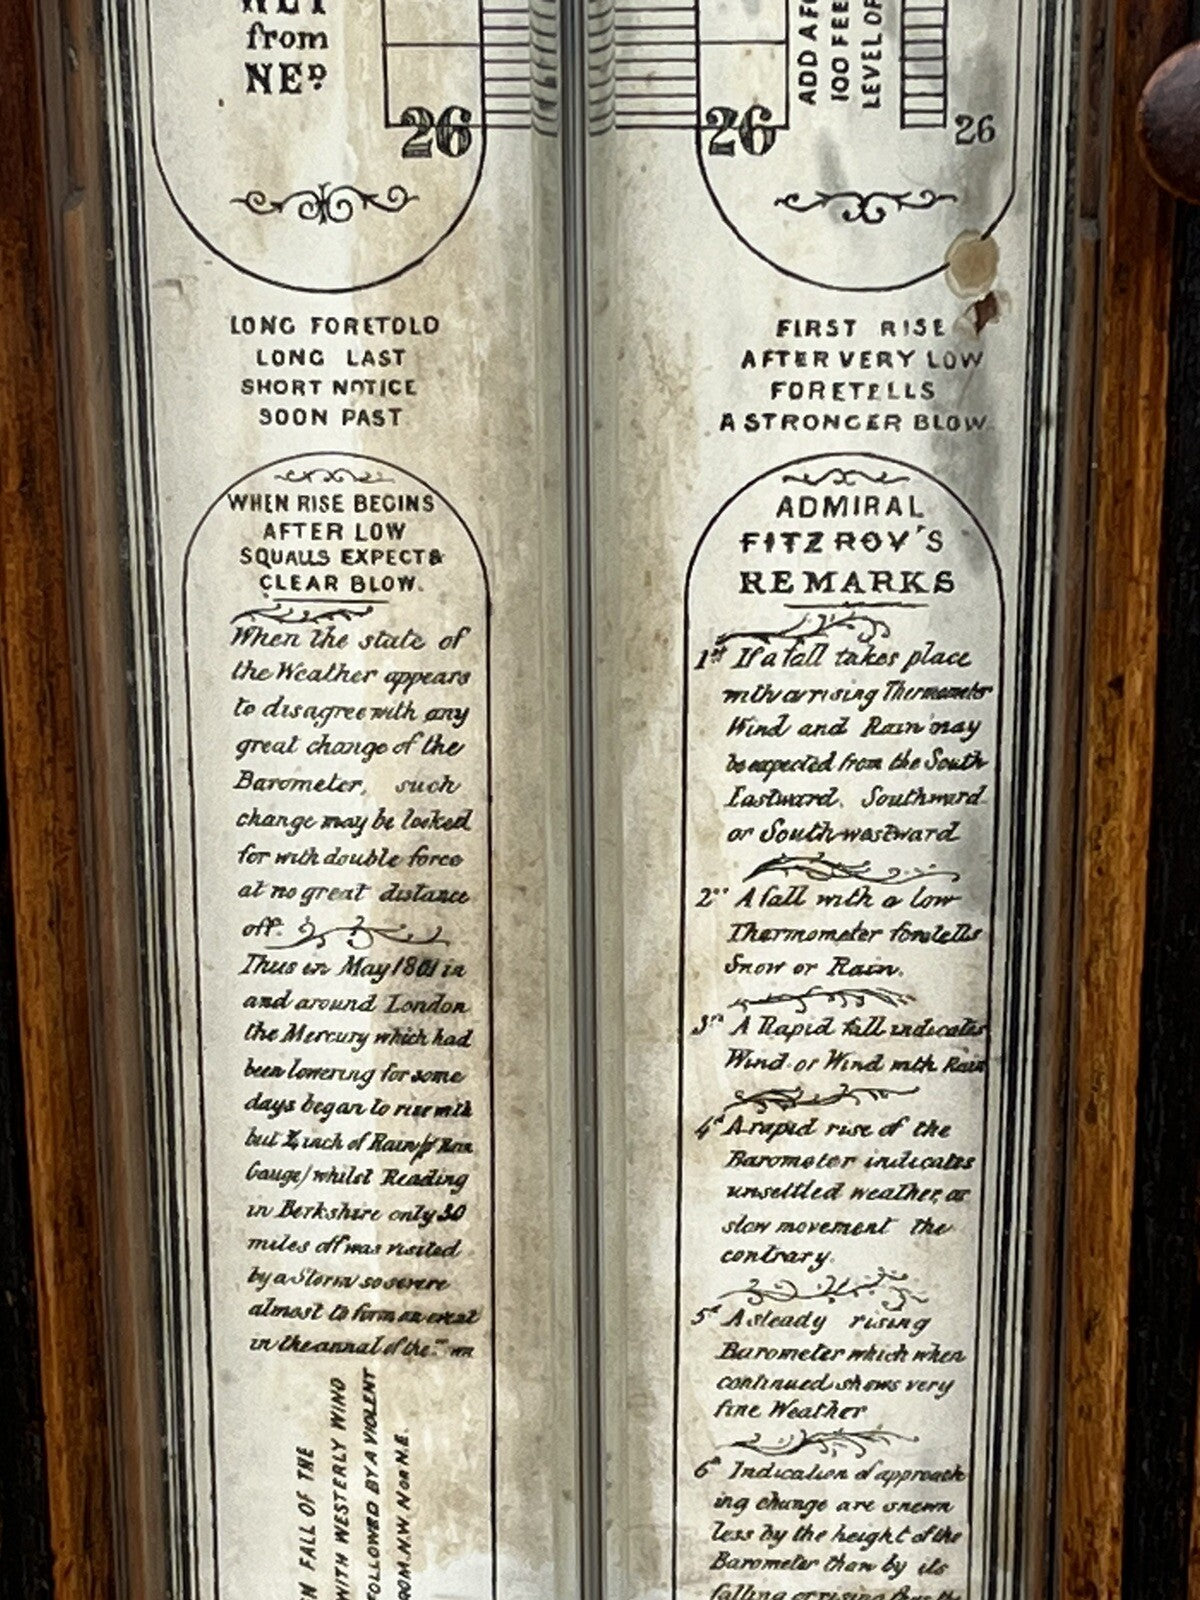 from
NED
26
LONG FORETOLD
LONG LAST
SHORT NOTICE
SOON PAST
WHEN RISE BEGINS
AFTER LOW
SQUALLS EXPECT &
CLEAR BLOW.
When the state of
the Weather appears
to disagree with any
great change of the
Barometer, such
change may be looked
for with double force
at no great distance
off.
Thus in May 1861 in
and around London
the Mercury which had
been lowering for some
days began to rise with
but ¼ inch of Rain
Gauge) whilst Reading
in Berkshire only 30
miles off was visited
by a Storm so severe
almost to form an event
in the annal of the
FALL OF THE
WITH WESTERLY WIND
FOLLOWED BY A VIOLENT
FROM N.W. N OR N.E.
26
ADD A
100 FEE
LEVEL OF
26
FIRST RISE
AFTER VERY LOW
FORETELLS
A STRONGER BLOW.
ADMIRAL
FITZROY'S
REMARKS
1st If a fall takes place
with a rising Thermometer
Wind and Rain may
be expected from the South
Eastward, Southward
or South-westward
2 A fall with a low
Thermometer foretells
Snow or Rain.
3 A Rapid fall indicates
Wind or Wind with Rain
4 A rapid rise of the
Barometer indicates
unsettled weather, a
slow movement the
contrary.
5 A steady rising
Barometer which when
continued shows very
fine Weather
6 Indication of approach
ing change are shewn
less by the height of the
Barometer than by its
falling or rising